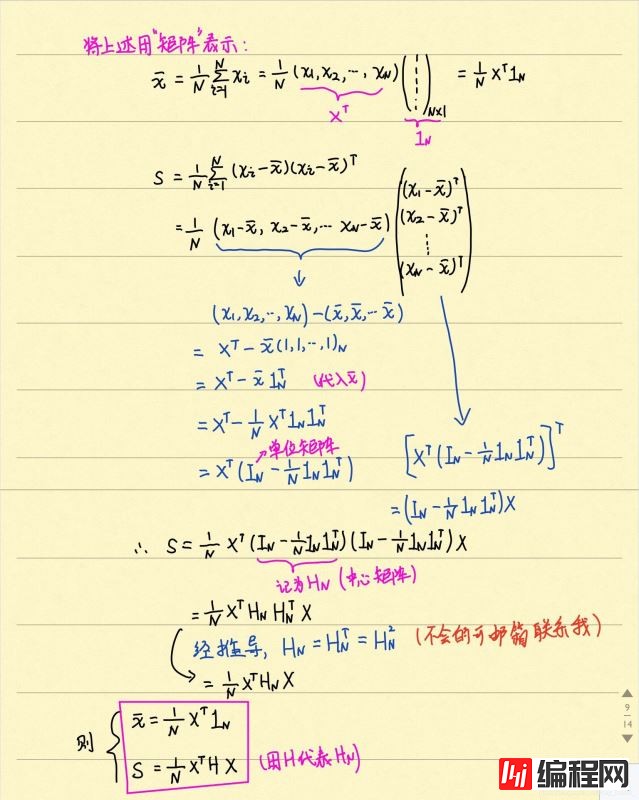 将上述用"矩阵"表示:
x̄ = 1/N ∑_{i=1}^{N} xᵢ = 1/N (x₁, x₂, ..., x_N) ( ⋮ )_{N×1} = 1/N Xᵀ 1_N
Xᵀ 1_N
S = 1/N ∑_{i=1}^{N} (xᵢ - x̄)(xᵢ - x̄)ᵀ
= 1/N (x₁ - x̄, x₂ - x̄, ... x_N - x̄) ( (x₁ - x̄)ᵀ
(x₂ - x̄)ᵀ
⋮
(x_N - x̄)ᵀ )
↓
(x₁, x₂, ..., x_N) - (x̄, x̄, ... x̄)
= Xᵀ - x̄(1, 1, ..., 1)_N
= Xᵀ - x̄ 1_Nᵀ (代入x̄)
= Xᵀ - 1/N Xᵀ 1_N 1_Nᵀ
↗单位矩阵
= Xᵀ (I_N - 1/N 1_N 1_Nᵀ)
[Xᵀ (I_N - 1/N 1_N 1_Nᵀ)]ᵀ
= (I_N - 1/N 1_N 1_Nᵀ) X
∴ S = 1/N Xᵀ (I_N - 1/N 1_N 1_Nᵀ)(I_N - 1/N 1_N 1_Nᵀ) X
记为H_N (中心矩阵)
= 1/N Xᵀ H_N H_Nᵀ X
经推导, H_N = H_Nᵀ = H_N² (不会的可邮箱联系我)
= 1/N Xᵀ H_N X
则 { x̄ = 1/N Xᵀ 1_N
S = 1/N Xᵀ H X (用H代表H_N)
9
14
编程网